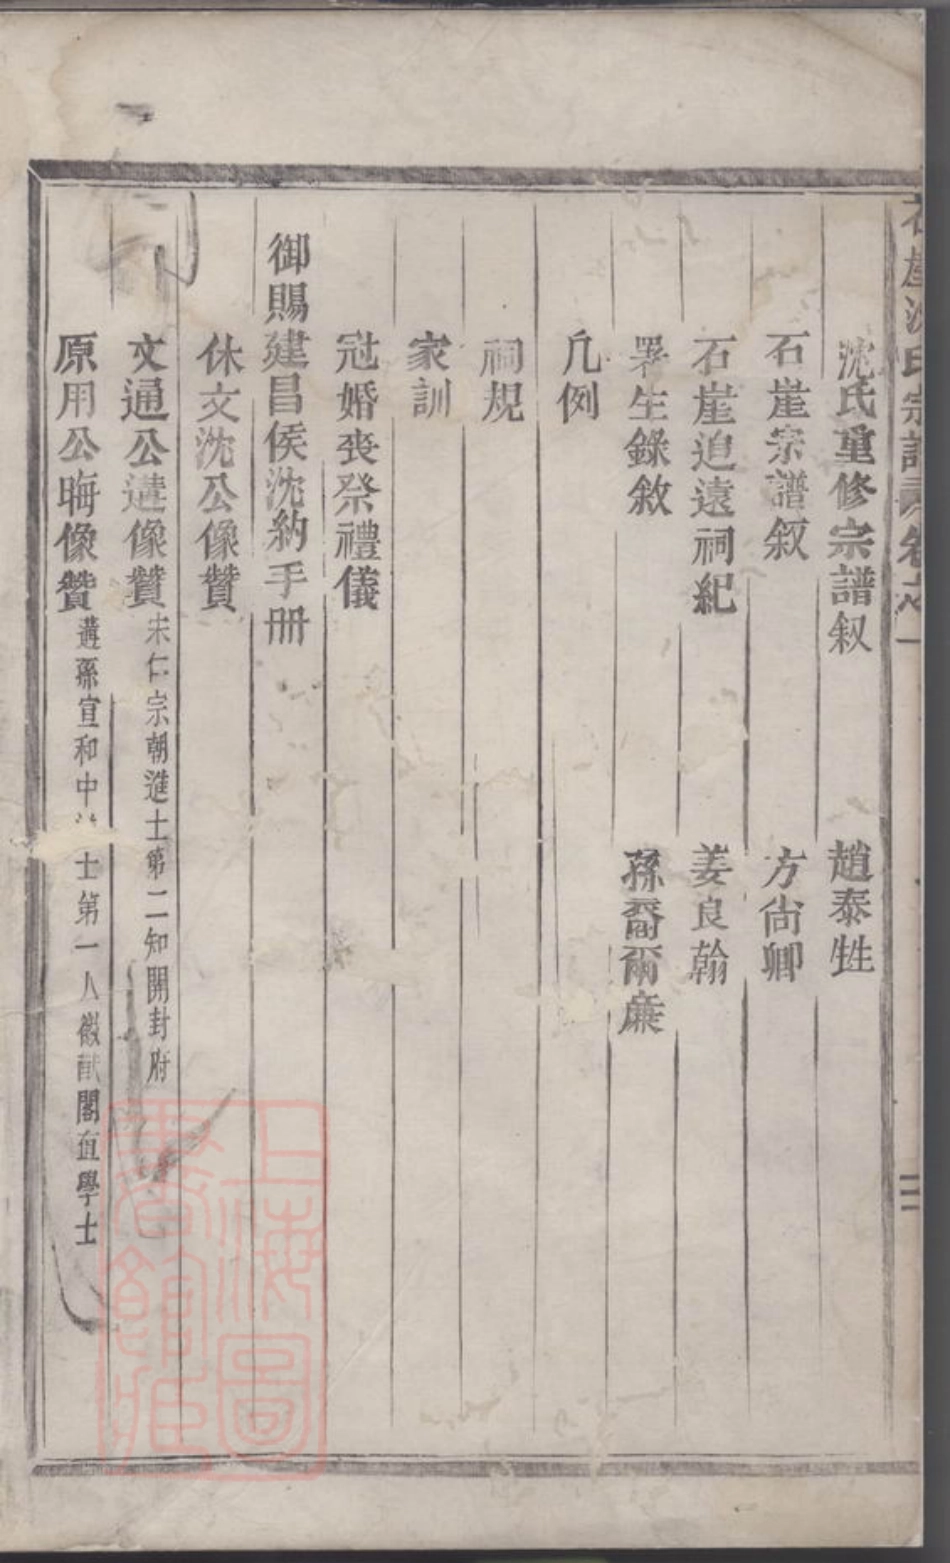 石崖沈氏宗譜卷之一
沈氏重修宗譜叙 趙泰甡
石崖宗譜叙 方尚卿
石崖追遠祠紀 姜良翰
畧生錄敘 孫裔爾廉
凡例
祠規
家訓
冠婚喪祭禮儀
御賜建昌侯沈納手冊
休文沈公像贊
文通公遘像贊 宋仁宗朝進士第二知開封府
原用公晦像贊 遘孫宣和中 士第一人徽猷閣直學士
二
上海圖
書館藏